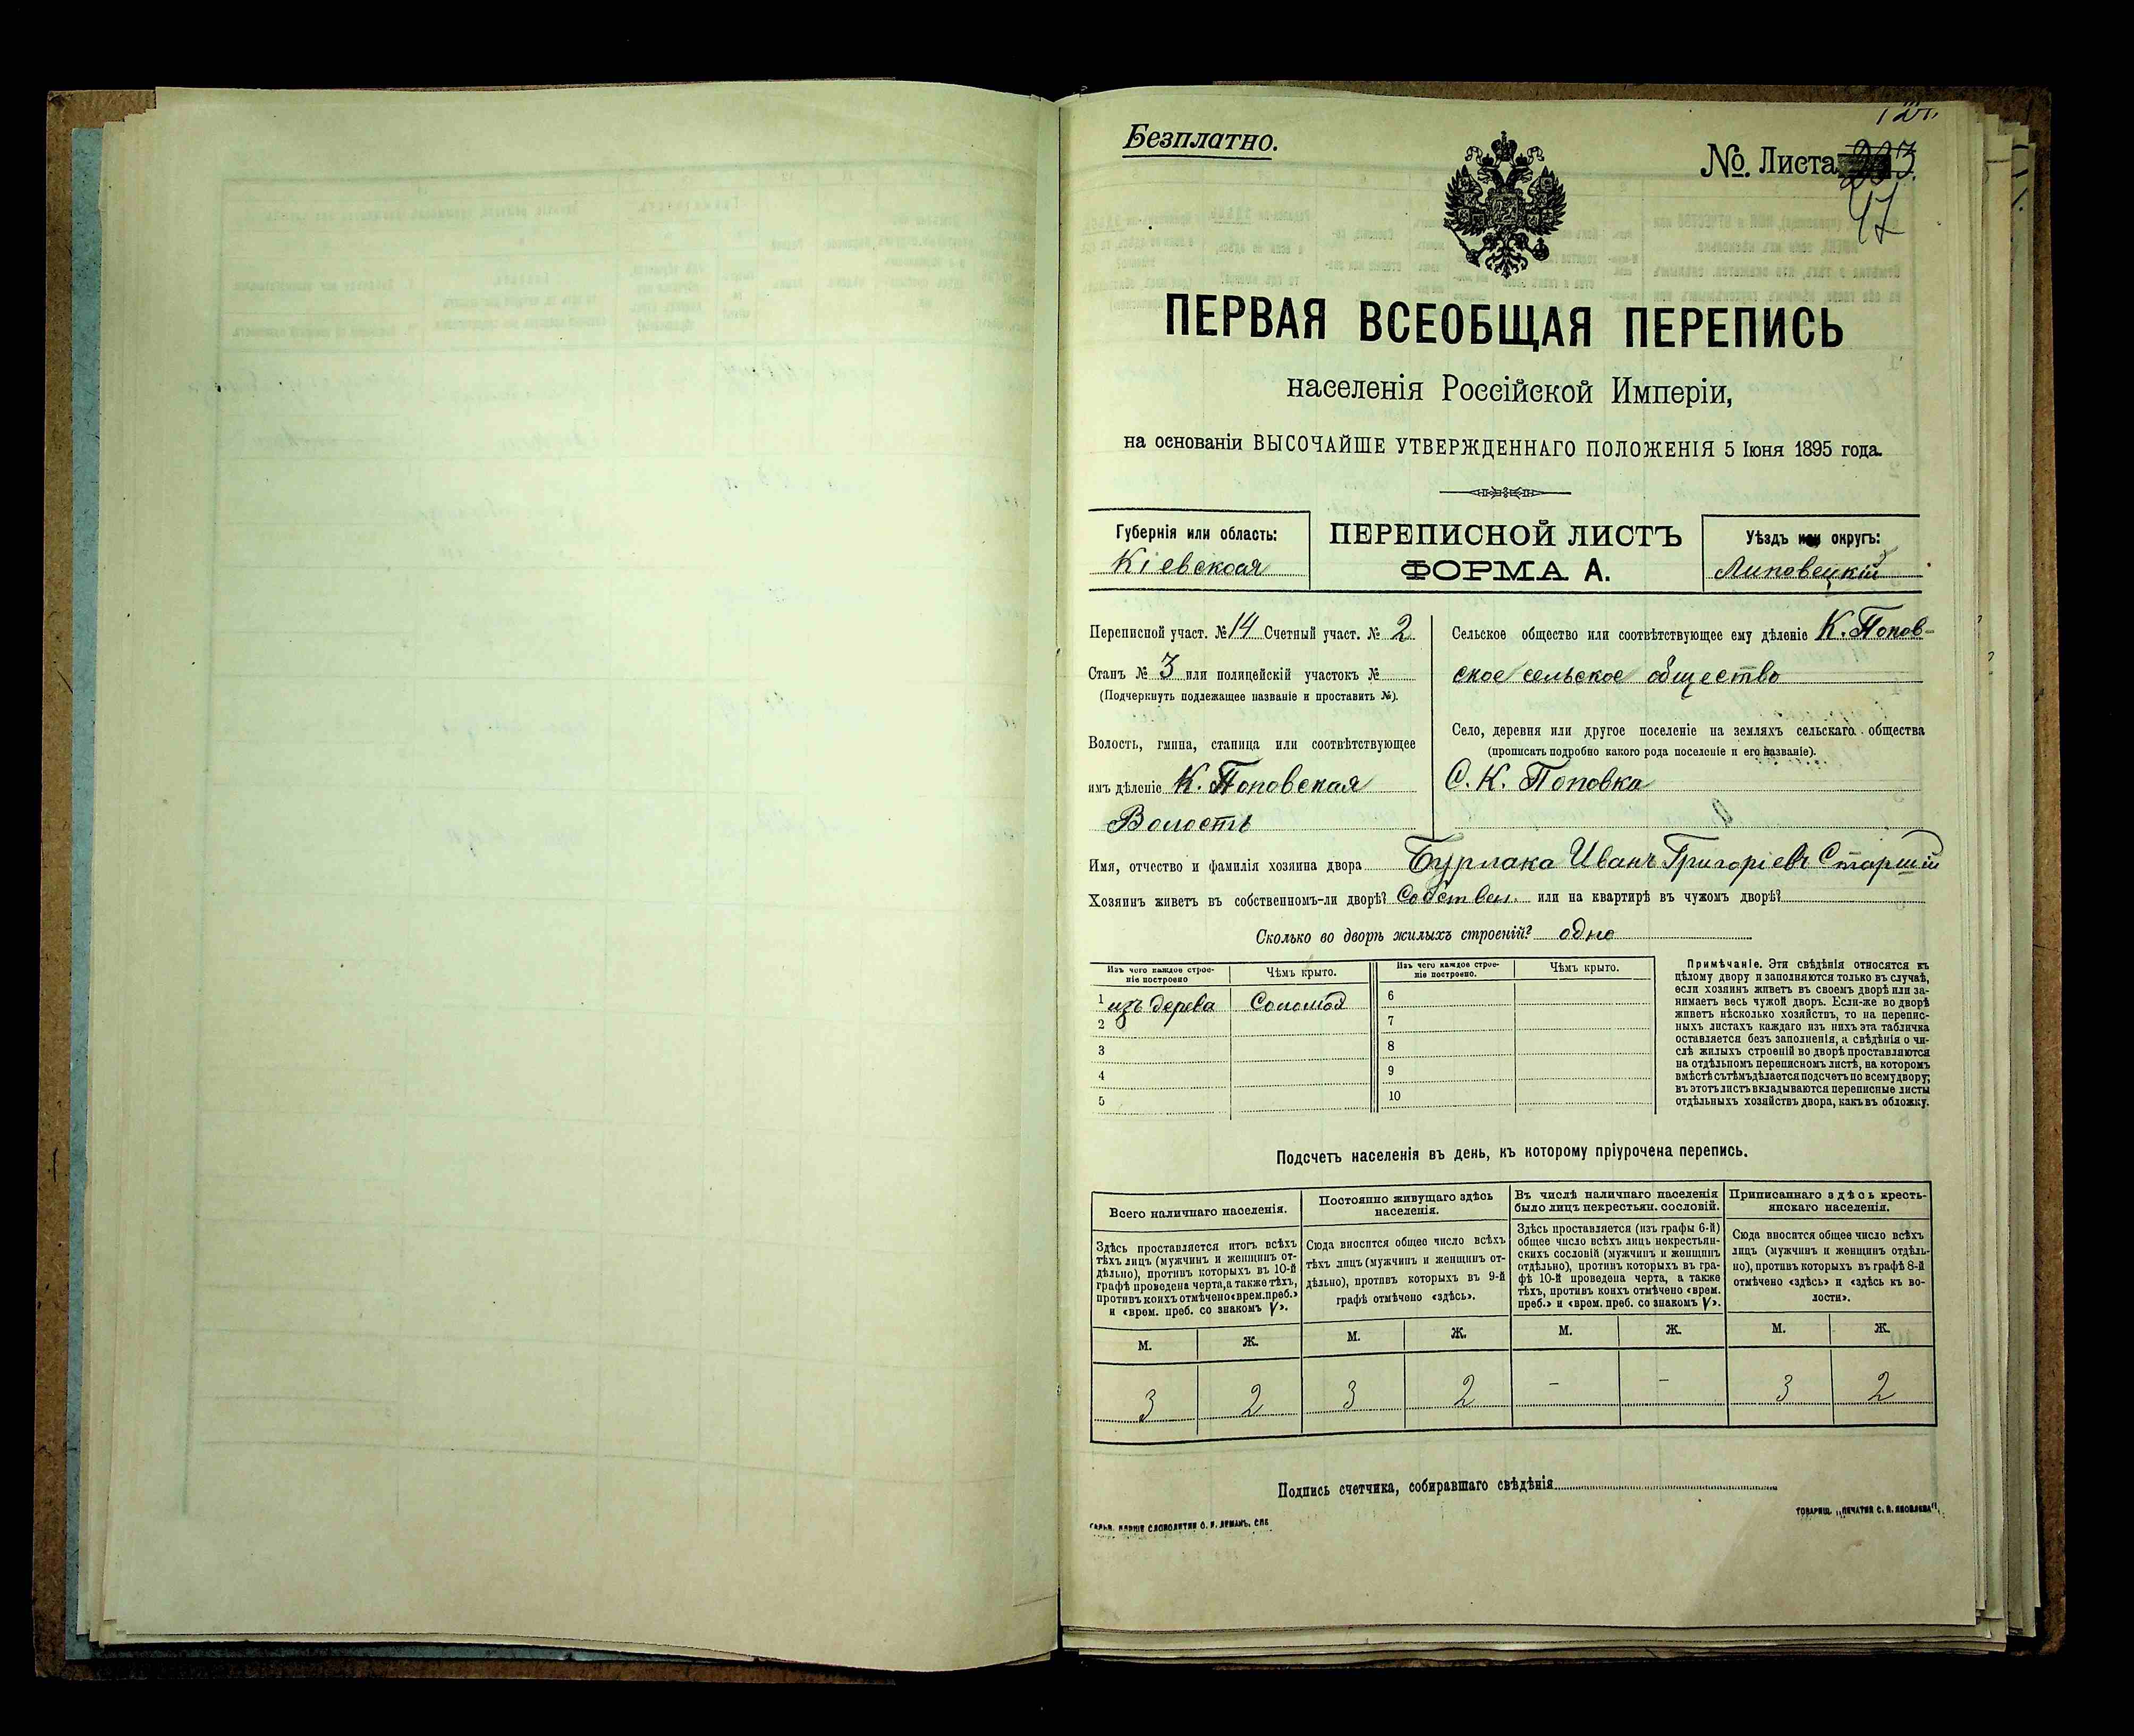 Безплатно.
№ Листа 223.
41
ПЕРВАЯ ВСЕОБЩАЯ ПЕРЕПИСЬ
населенія Россійской Имперіи,
на основаніи ВЫСОЧАЙШЕ УТВЕРЖДЕННАГО ПОЛОЖЕНІЯ 5 Іюня 1895 года.
Губернія или область:
Кіевскоая
ПЕРЕПИСНОЙ ЛИСТЪ
ФОРМА А.
Уѣздъ или округъ:
Липовецкій
Переписной участ. № 14 Счетный участ. № 2
Станъ № 3 или полицейскій участокъ №
(Подчеркнуть подлежащее названіе и проставить №).
Волость, гмина, станица или соотвѣтствующее
имъ дѣленіе К. Поповская
Волость
Сельское общество или соотвѣтствующее ему дѣленіе К. Попов-
ское сельское общество
Село, деревня или другое поселеніе на земляхъ сельскаго общества
(прописать подробно какого рода поселеніе и его названіе).
С. К. Поповка
Имя, отчество и фамилія хозяина двора Бурлака Иванъ Григоріевъ Старшій
Хозяинъ живетъ въ собственномъ-ли дворѣ? Собствен. или на квартирѣ въ чужомъ дворѣ?
Сколько во дворѣ жилыхъ строеній? одно
Изъ чего каждое строе-
ніе построено
Чѣмъ крыто.
1 изъ дерева Соломой
2
3
4
5
Изъ чего каждое строе-
ніе построено.
Чѣмъ крыто.
6
7
8
9
10
Примѣчаніе. Эти свѣдѣнія относятся къ
цѣлому двору и заполняются только въ случаѣ,
если хозяинъ живетъ въ своемъ дворѣ или за-
нимаетъ весь чужой дворъ. Если-же во дворѣ
живетъ нѣсколько хозяйствъ, то на перепис-
ныхъ листахъ каждаго изъ нихъ эта табличка
оставляется безъ заполненія, а свѣдѣнія о чи-
слѣ жилыхъ строеній во дворѣ проставляются
на отдѣльномъ переписномъ листѣ, на которомъ
вмѣстѣ съ тѣмъ дѣлается подсчетъ по всему двору;
въ этотъ листъ вкладываются переписные листы
отдѣльныхъ хозяйствъ двора, какъ въ обложку.
Подсчетъ населенія въ день, къ которому пріурочена перепись.
Всего наличнаго населенія.
Здѣсь проставляется итогъ всѣхъ
тѣхъ лицъ (мужчинъ и женщинъ от-
дѣльно), противъ которыхъ въ 10-й
графѣ проведена черта, а также тѣхъ,
противъ коихъ отмѣчено «врем. преб.»
и «врем. преб. со знакомъ V».
Постоянно живущаго здѣсь
населенія.
Сюда вносится общее число всѣхъ
тѣхъ лицъ (мужчинъ и женщинъ от-
дѣльно), противъ которыхъ въ 9-й
графѣ отмѣчено «здѣсь».
Въ числѣ наличнаго населенія
было лицъ некрестьян. сословій.
Здѣсь проставляется (изъ графы 6-й)
общее число всѣхъ лицъ некрестьян-
скихъ сословій (мужчинъ и женщинъ
отдѣльно), противъ которыхъ въ гра-
фѣ 10-й проведена черта, а также
тѣхъ, противъ коихъ отмѣчено «врем.
преб.» и «врем. преб. со знакомъ V».
Приписаннаго здѣсь кресть-
янскаго населенія.
Сюда вносится общее число всѣхъ
лицъ (мужчинъ и женщинъ отдѣль-
но), противъ которыхъ въ графѣ 8-й
отмѣчено «здѣсь» и «здѣсь къ во-
лости».
М. Ж. М. Ж. М. Ж. М. Ж.
3 2 3 2 – – 3 2
Подпись счетчика, собиравшаго свѣдѣнія
СЛОВОЛИТНИ О. И. ЛЕМАНЪ, СПБ
ТОВАРИЩ. „ПЕЧАТНЯ С. П. ЯКОВЛЕВА“.